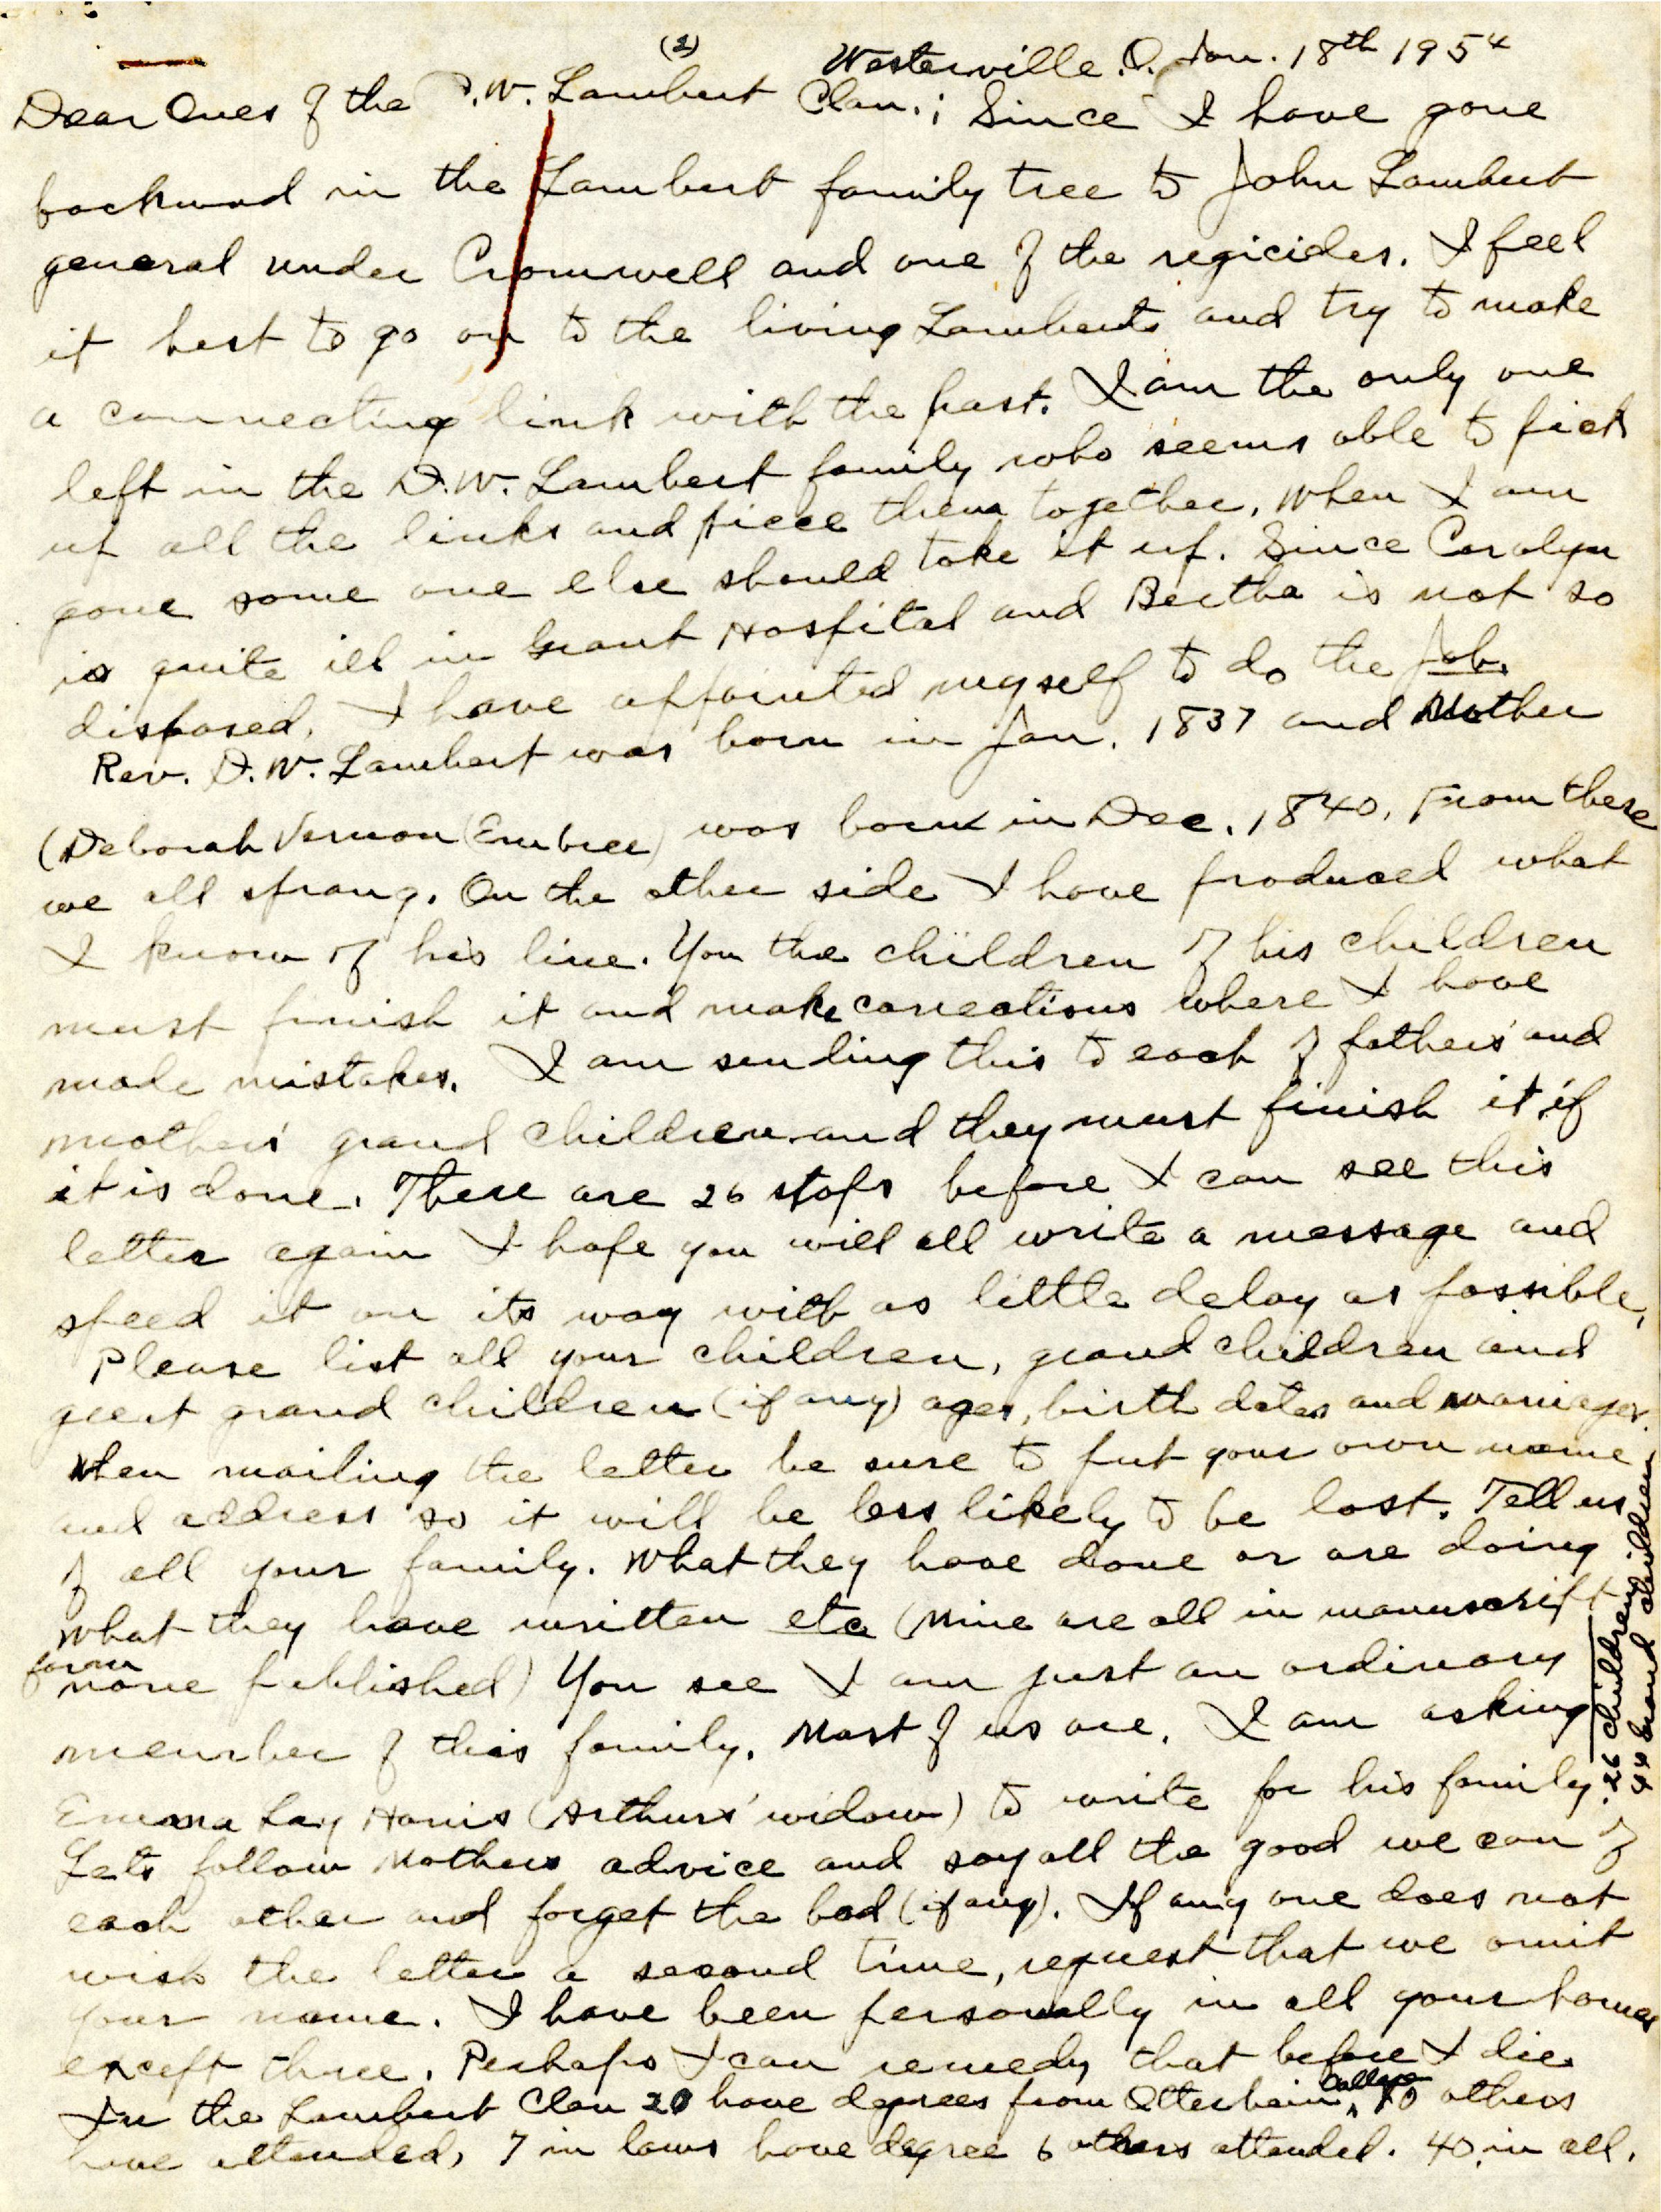 (1)
Westerville. O. Jan. 18th 1954
Dear Ones of the D.W. Lambert Clan.; Since I have gone
backward in the Lambert family tree to John Lambert
general under Cromwell and one of the regicides. I feel
it best to go on to the living Lamberts and try to make
a connecting link with the past. I am the only one
left in the D.W. Lambert family who seems able to pick
up all the links and piece them together. When I am
gone some one else should take it up. Since Carolyn
is quite ill in Grant Hospital and Bertha is not so
disposed, I have appointed myself to do the job.
Rev. D.W. Lambert was born in Jan. 1837 and Mother
(Deborah Vernon (Embree) was born in Dec. 1840. From these
we all sprang. On the other side I have produced what
I know of his line. You the children of his children
must finish it and make corrections where I have
made mistakes. I am sending this to each of father's and
mother's grand children and they must finish it if
it is done. There are 26 stops before I can see this
letter again I hope you will all write a message and
speed it on its way with as little delay as possible.
Please list all your children, grand children and
great grand children (if any) ages, birth dates and marriages.
When mailing the letter be sure to put your own name
and address so it will be less likely to be lost. Tell us
of all your family. What they have done or are doing
What they have written etc (Mine are all in manuscript
form
none published) You see I am just an ordinary
member of this family. Most of us are. I am asking
Emma Lay Harris (Arthurs' widow) to write for his family.
Lets follow Mothers advice and say all the good we can of
each other and forget the bad (if any). If any one does not
wish the letter a second time, request that we omit
your name. I have been personally in all your homes
except three. Perhaps I can remedy that before I die.
In the Lambert Clan 20 have degrees from Otterbein College, 10 others
have attended, 7 in laws have degree 6 others attended. 40 in all.
26 children
44 Grand children